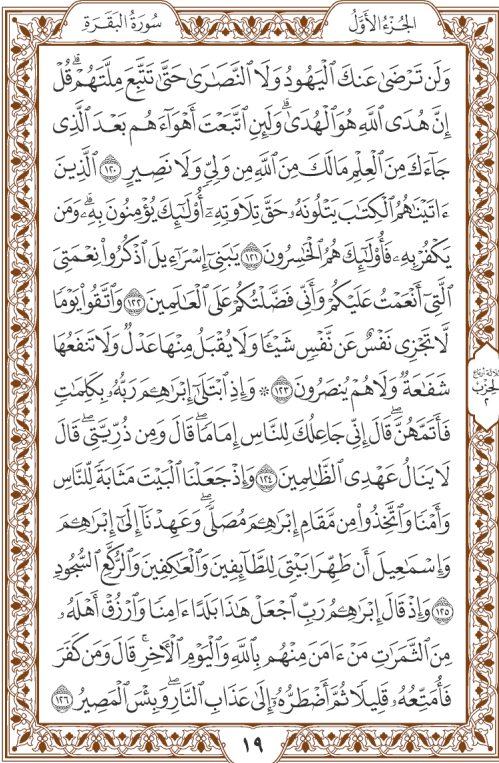 الجُزْءُ الأَوَّلُ
سُورَةُ البَقَرَةِ
وَلَن تَرْضَىٰ عَنكَ ٱلْيَهُودُ وَلَا ٱلنَّصَٰرَىٰ حَتَّىٰ تَتَّبِعَ مِلَّتَهُمْۗ قُلْ
إِنَّ هُدَى ٱللَّهِ هُوَ ٱلْهُدَىٰۗ وَلَئِنِ ٱتَّبَعْتَ أَهْوَآءَهُم بَعْدَ ٱلَّذِى
جَآءَكَ مِنَ ٱلْعِلْمِ مَا لَكَ مِنَ ٱللَّهِ مِن وَلِىٍّ وَلَا نَصِيرٍ ١٢٠ ٱلَّذِينَ
ءَاتَيْنَٰهُمُ ٱلْكِتَٰبَ يَتْلُونَهُۥ حَقَّ تِلَاوَتِهِۦٓ أُو۟لَٰٓئِكَ يُؤْمِنُونَ بِهِۦۗ وَمَن
يَكْفُرْ بِهِۦ فَأُو۟لَٰٓئِكَ هُمُ ٱلْخَٰسِرُونَ ١٢١ يَٰبَنِىٓ إِسْرَٰٓءِيلَ ٱذْكُرُوا۟ نِعْمَتِىَ
ٱلَّتِىٓ أَنْعَمْتُ عَلَيْكُمْ وَأَنِّى فَضَّلْتُكُمْ عَلَى ٱلْعَٰلَمِينَ ١٢٢ وَٱتَّقُوا۟ يَوْمًا
لَّا تَجْزِى نَفْسٌ عَن نَّفْسٍ شَيْـًٔا وَلَا يُقْبَلُ مِنْهَا عَدْلٌ وَلَا تَنفَعُهَا
شَفَٰعَةٌ وَلَا هُمْ يُنصَرُونَ ١٢٣ ۞ وَإِذِ ٱبْتَلَىٰٓ إِبْرَٰهِـۧمَ رَبُّهُۥ بِكَلِمَٰتٍ
فَأَتَمَّهُنَّۖ قَالَ إِنِّى جَاعِلُكَ لِلنَّاسِ إِمَامًاۖ قَالَ وَمِن ذُرِّيَّتِىۖ قَالَ
لَا يَنَالُ عَهْدِى ٱلظَّٰلِمِينَ ١٢٤ وَإِذْ جَعَلْنَا ٱلْبَيْتَ مَثَابَةً لِّلنَّاسِ
وَأَمْنًا وَٱتَّخِذُوا۟ مِن مَّقَامِ إِبْرَٰهِـۧمَ مُصَلًّىۖ وَعَهِدْنَآ إِلَىٰٓ إِبْرَٰهِـۧمَ
وَإِسْمَٰعِيلَ أَن طَهِّرَا بَيْتِىَ لِلطَّآئِفِينَ وَٱلْعَٰكِفِينَ وَٱلرُّكَّعِ ٱلسُّجُودِ
١٢٥ وَإِذْ قَالَ إِبْرَٰهِـۧمُ رَبِّ ٱجْعَلْ هَٰذَا بَلَدًا ءَامِنًا وَٱرْزُقْ أَهْلَهُۥ
مِنَ ٱلثَّمَرَٰتِ مَنْ ءَامَنَ مِنْهُم بِٱللَّهِ وَٱلْيَوْمِ ٱلْأَخِرِۚ قَالَ وَمَن كَفَرَ
فَأُمَتِّعُهُۥ قَلِيلًا ثُمَّ أَضْطَرُّهُۥٓ إِلَىٰ عَذَابِ ٱلنَّارِۖ وَبِئْسَ ٱلْمَصِيرُ ١٢٦
ثلاثة أرباع
الحزب
٢
١٩